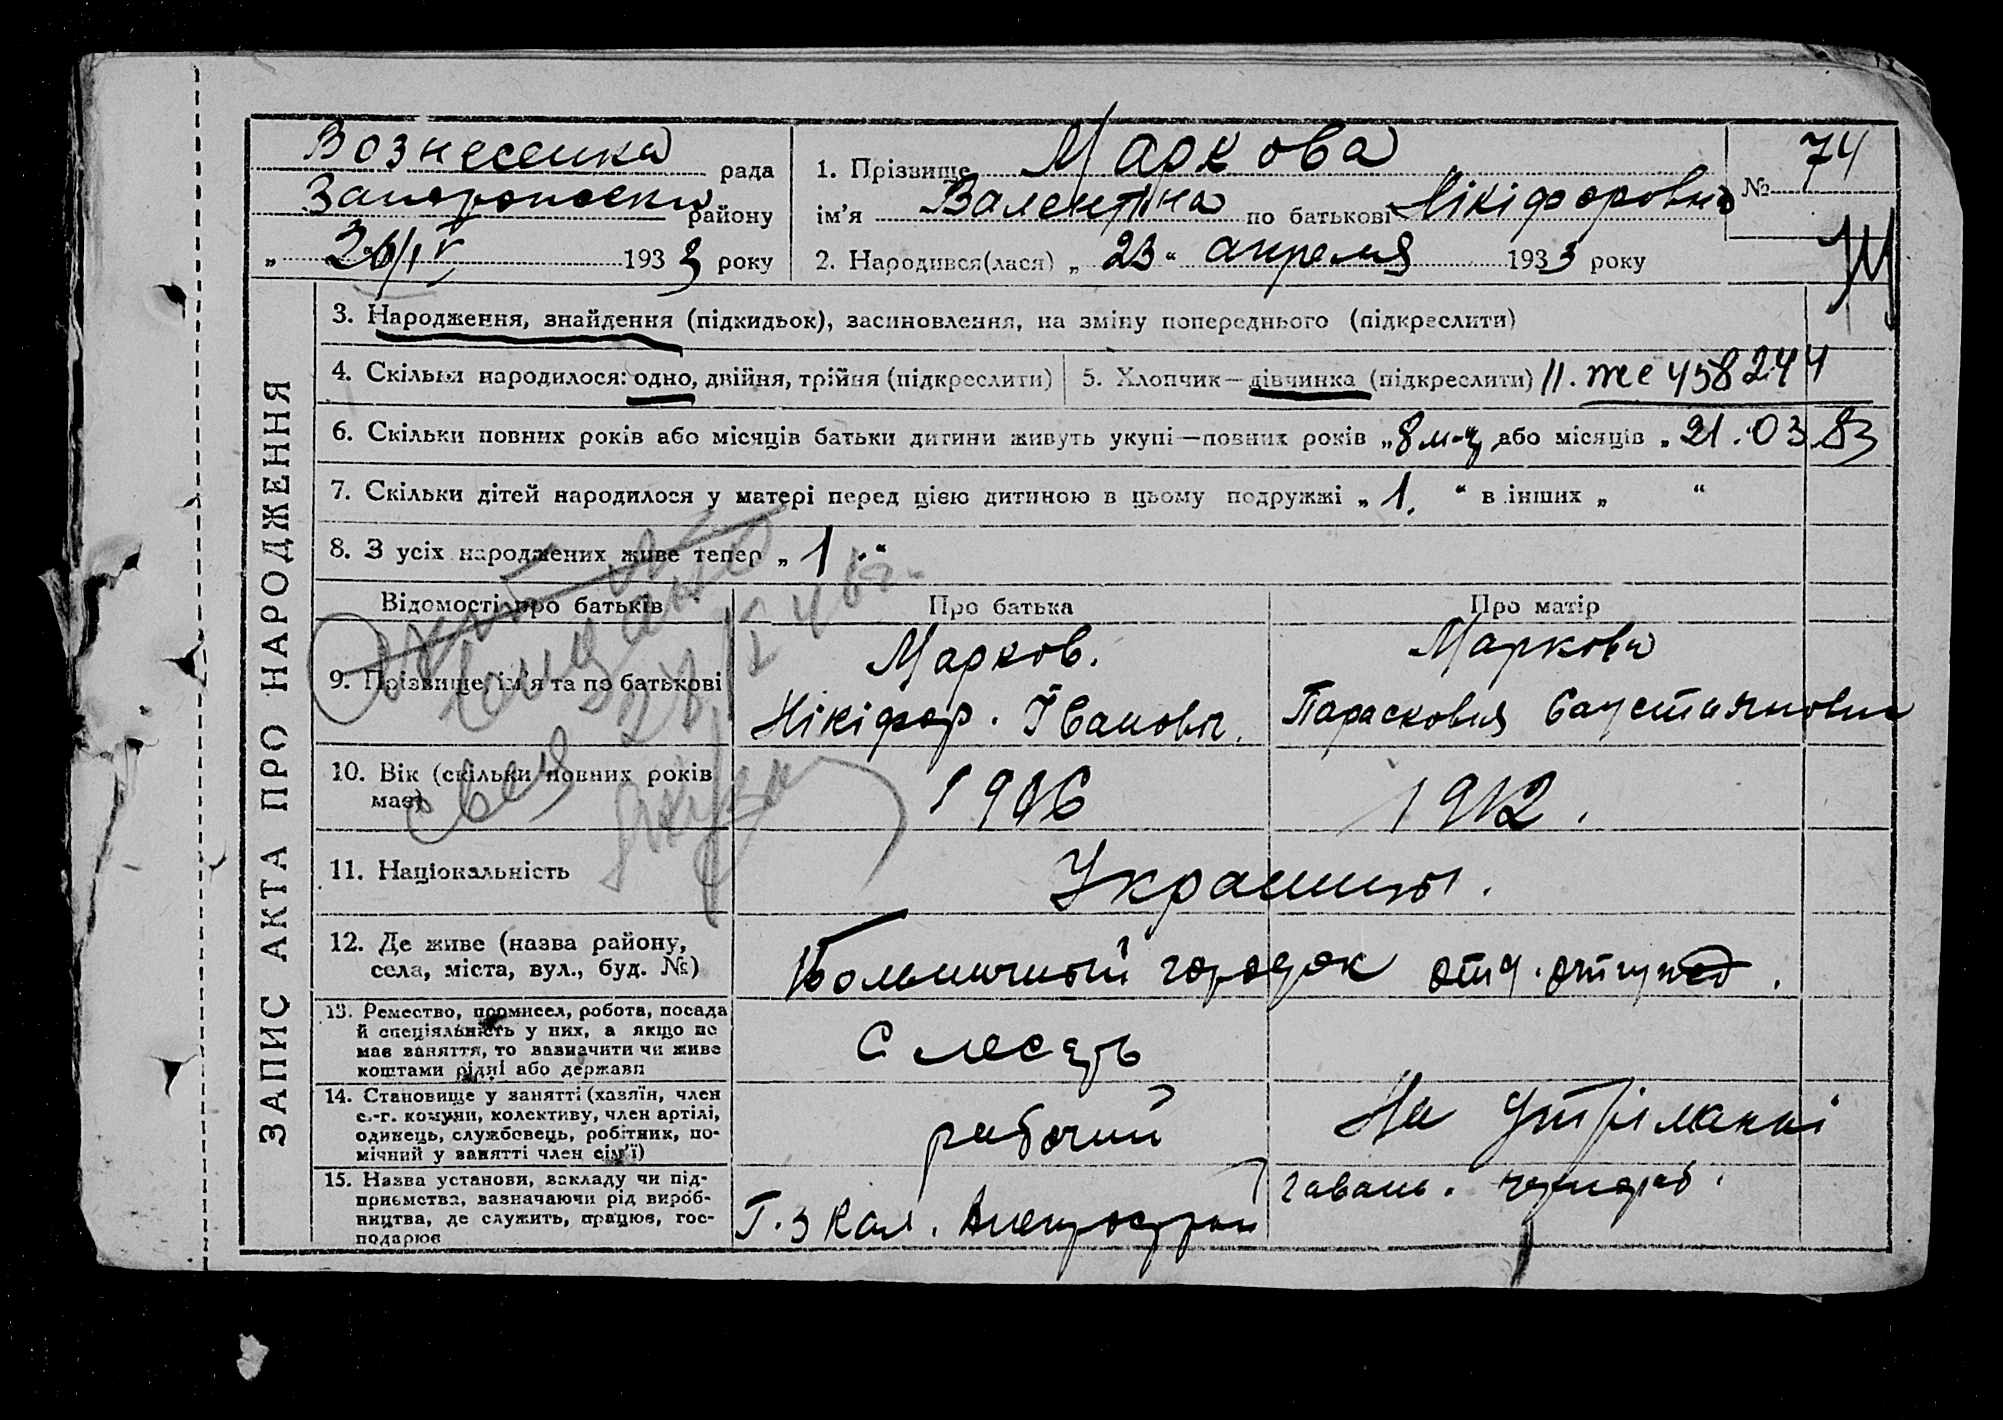 ЗАПИС АКТА ПРО НАРОДЖЕННЯ
Вознесенка рада
району
„ 26/IV 1933 року
1. Прізвище Маркова
ім’я Валентина по батькові Нікіфоровна
2. Народився(лася) „ 23 “ апреля 1933 року
№ 74
3. Народження, знайдення (підкидьок), засиновлення, на зміну попереднього (підкреслити)
4. Скільки народилося: одно, двійня, трійня (підкреслити)
5. Хлопчик—дівчинка (підкреслити) II. же 458244
6. Скільки повних років або місяців батьки дитини живуть укупі—повних років „ 8 м-ц або місяців „ 21.03.83
7. Скільки дітей народилося у матері перед цією дитиною в цьому подружжі „ 1. “ в інших „ “
8. З усіх народжених живе тепер „ 1 “
Відомості про батьків
Про батька
Про матір
9. Прізвище, ім’я та по батькові
Марков.
Нікіфор. Іванович.
Маркова
Парасковия
10. Вік (скільки повних років
має)
1906
1912.
11. Національність
Украинцы.
12. Де живе (назва району,
села, міста, вул., буд. №)
Больничный городок
13. Ремество, промисел, робота, посада
й спеціяльність у них, а якщо не
має заняття, то зазначити чи живе
коштами рідні або держави
Слесарь
14. Становище у занятті (хазяїн, член
с.-г. комуни, колективу, член артілі,
одинець, службовець, робітник, по-
мічний у занятті член сім’ї)
рабочий
На утріманні
15. Назва установи, закладу чи під-
приємства, зазначаючи рід вироб-
ництва, де служить, працює, гос-
подарює